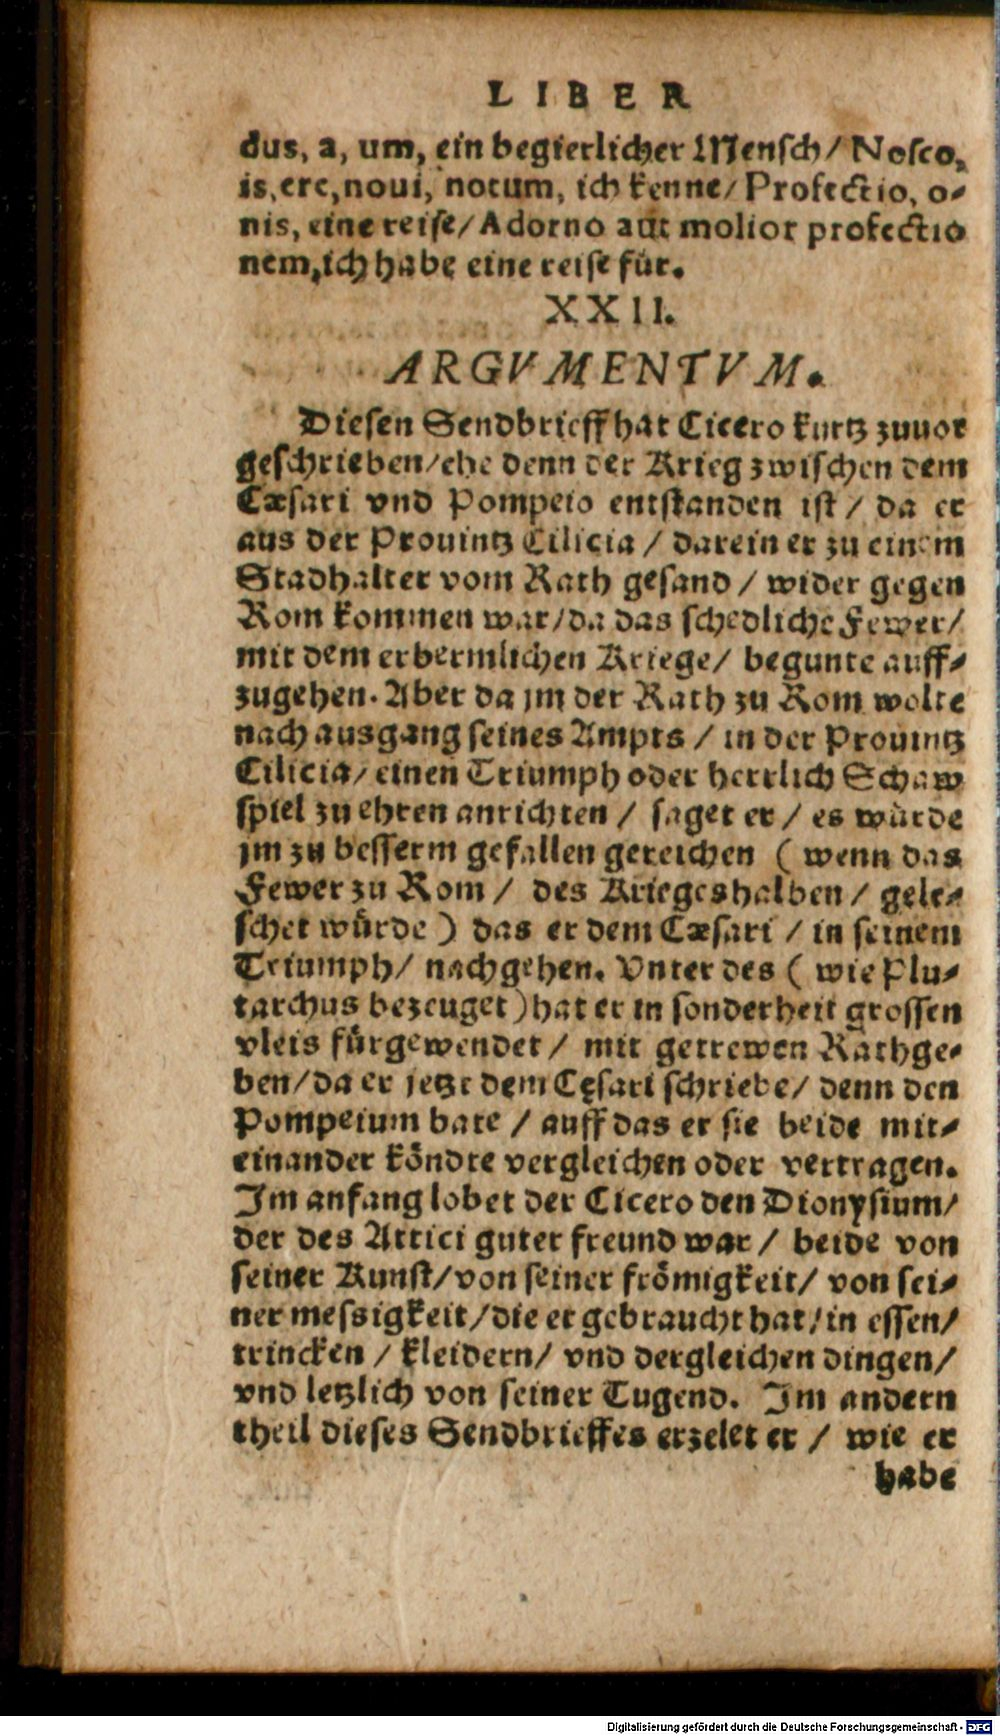 LIBER
dus, a, um, ein begierlicher Mensch/ Nosco,
is, ere, noui, notum, ich kenne/ Profectio, o-
nis, eine reise/ Adorno aut molior profectio
nem, ich habe eine reise für.
XXII.
ARGVMENTVM.
Diesen Sendbrieff hat Cicero kurtz zuuor
geschrieben/ehe denn der Krieg zwischen dem
Cæsari vnd Pompeio entstanden ist / da er
aus der Prouintz Cilicia / darein er zu einem
Stadhalter vom Rath gesand / wider gegen
Rom kommen war/da das schedliche Fewer/
mit dem erbermlichen Kriege/ begunte auff-
zugehen. Aber da jm der Rath zu Rom wolte
nach ausgang seines Ampts / in der Prouintz
Cilicia/ einen Triumph oder herrlich Schaw
spiel zu ehren anrichten / saget er / es würde
jm zu besserm gefallen gereichen ( wenn das
Fewer zu Rom / des Krieges halben / gele-
schet würde ) das er dem Cæsari / in seinem
Triumph/ nachgehen. Vnter des ( wie Plu-
tarchus bezeuget ) hat er in sonderheit grossen
vleis fürgewendet / mit getrewen Rathge-
ben/da er jetzt dem Cęsari schriebe/ denn den
Pompeium bate / auff das er sie beide mit-
einander köndte vergleichen oder vertragen.
Im anfang lobet der Cicero den Dionysium/
der des Attici guter freund war / beide von
seiner Kunst/von seiner frömigkeit/ von sei-
ner messigkeit/die er gebraucht hat/in essen/
trincken / kleidern/ vnd dergleichen dingen/
vnd letzlich von seiner Tugend. Im andern
theil dieses Sendbrieffes erzelet er / wie er
habe
Digitalisierung gefördert durch die Deutsche Forschungsgemeinschaft - DFG